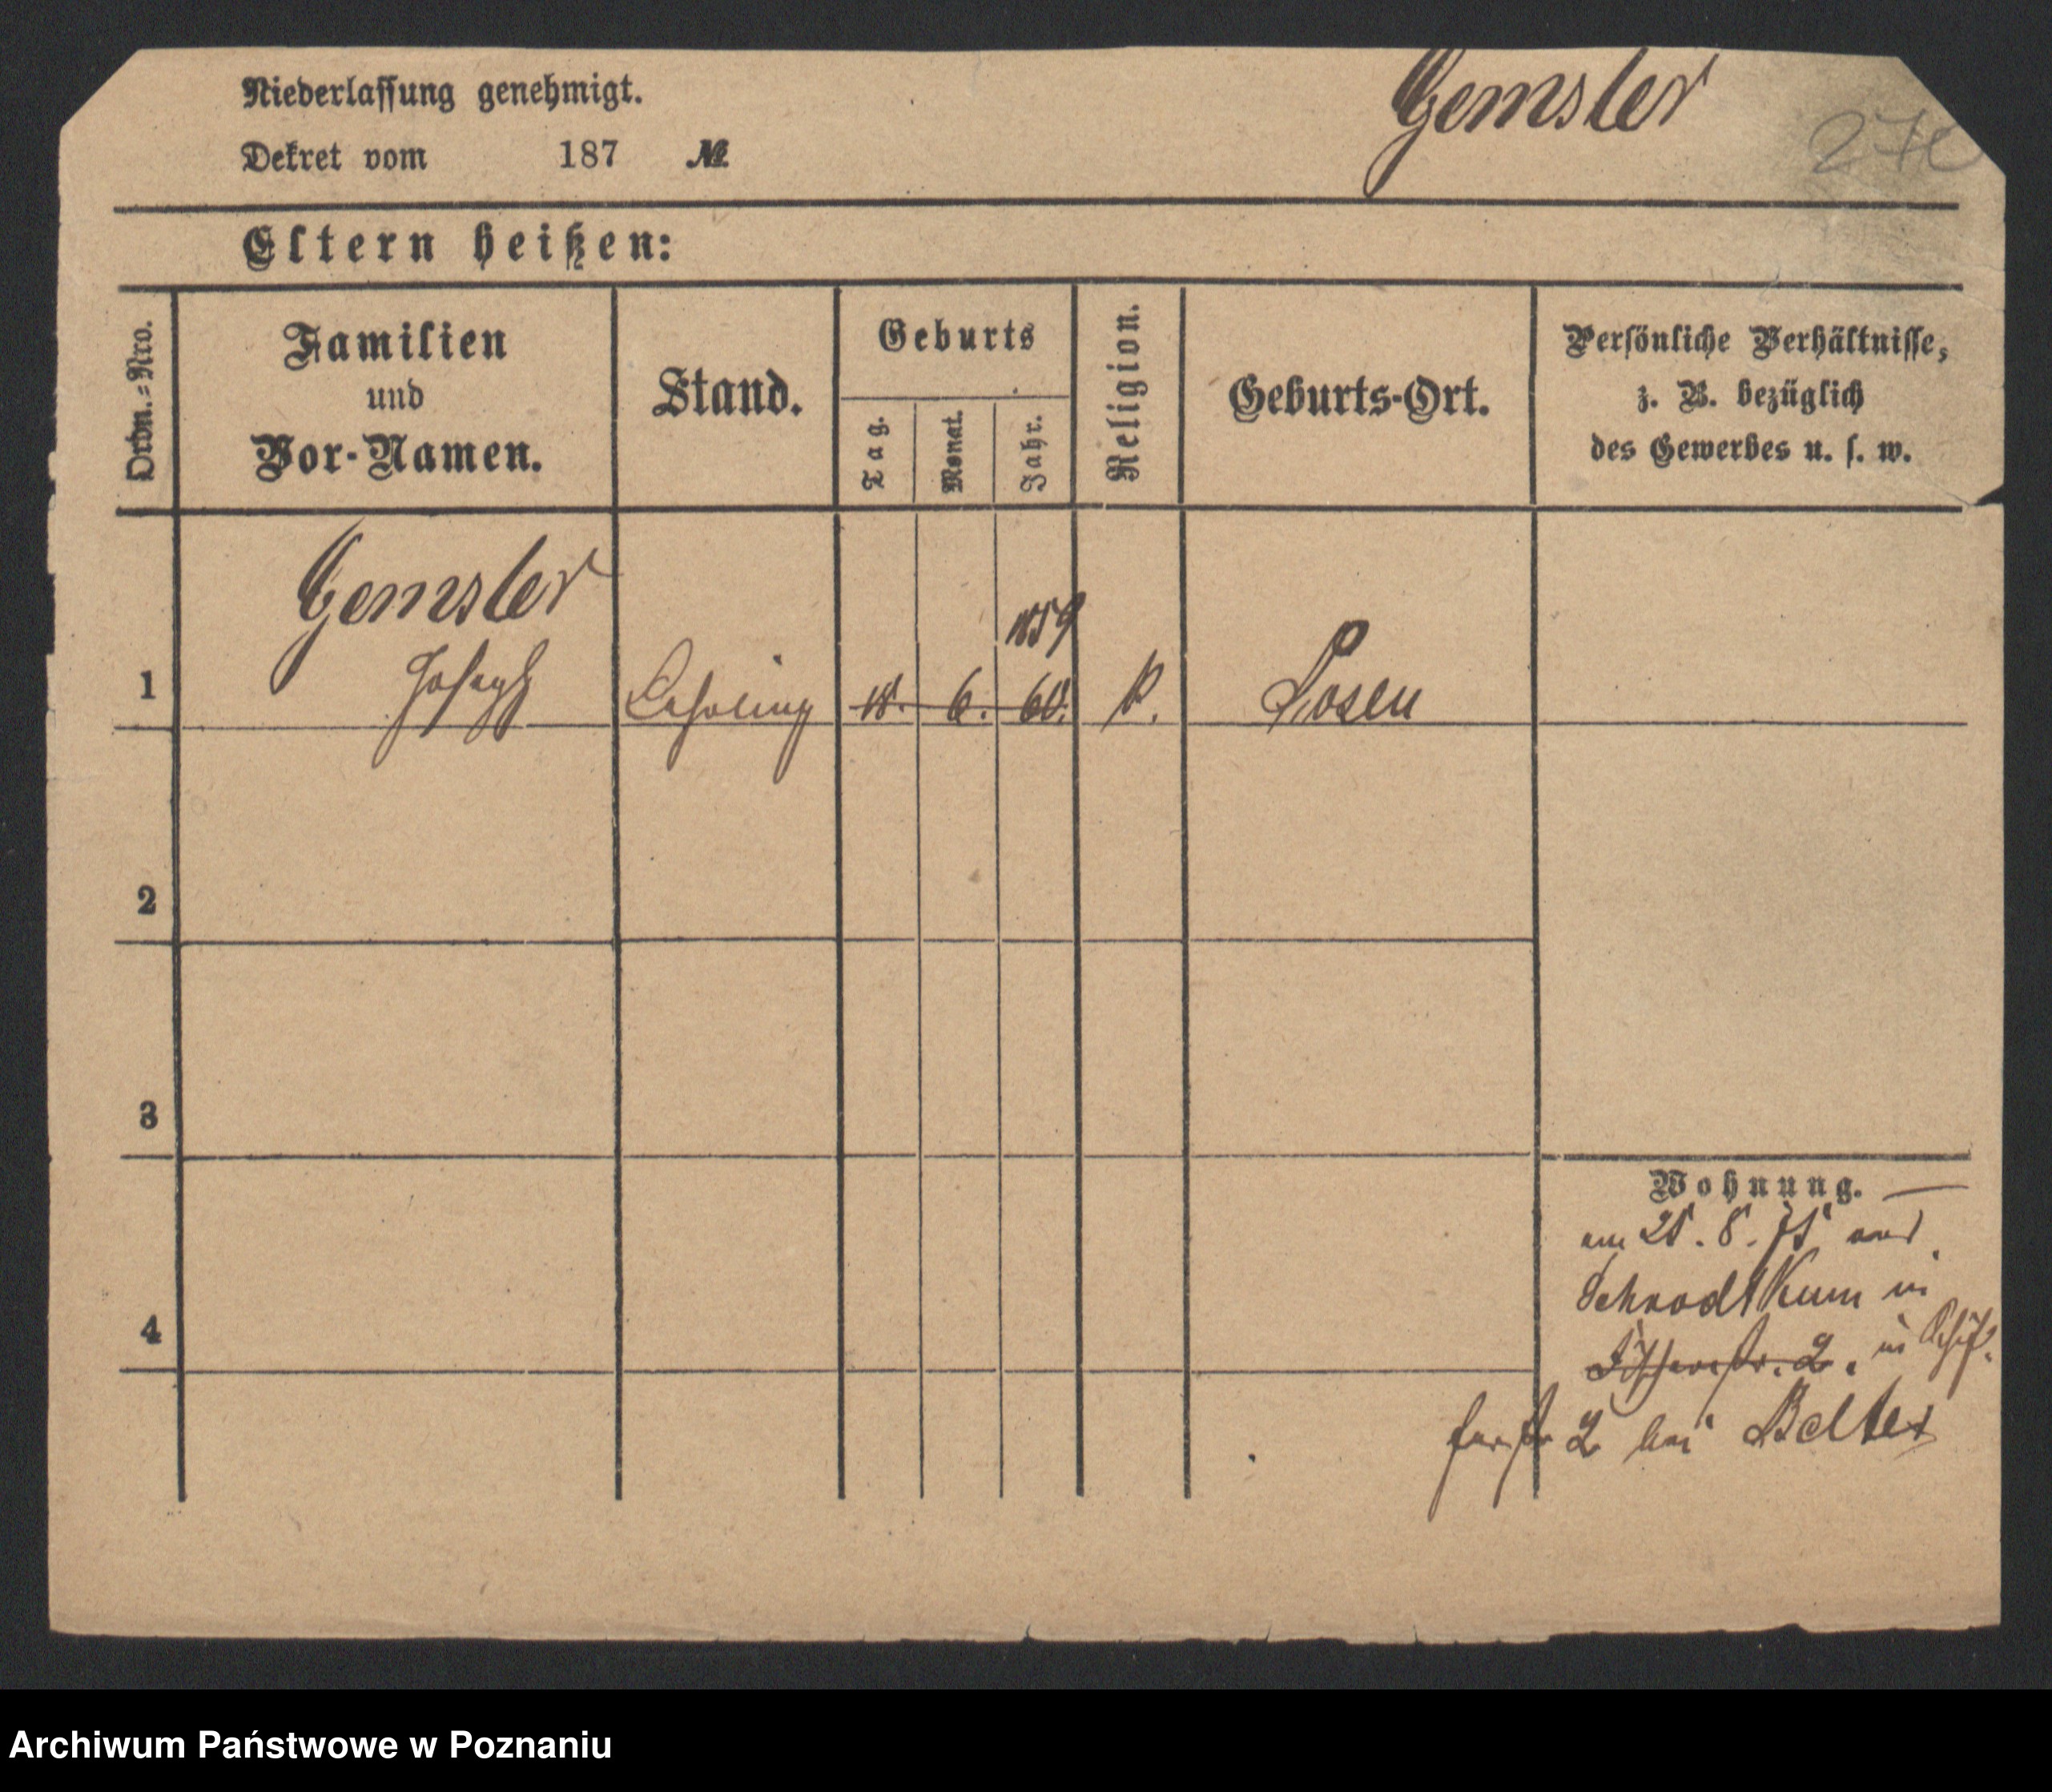 Niederlassung genehmigt.
Dekret vom 187 №
Gemsler
Eltern heißen:
Ordn.=Nro.
Familien
und
Vor-Namen.
Stand.
Geburts
Tag.
Monat.
Jahr.
Religion.
Geburts-Ort.
Persönliche Verhältnisse,
z. B. bezüglich
des Gewerbes u. s. w.
Gemsler
1859
1 Joseph Lehrling 18. 6. 60. k. Posen
2
3
Wohnung.
am 25. 8. 75
in
4
2. in
2 bei
Archiwum Państwowe w Poznaniu